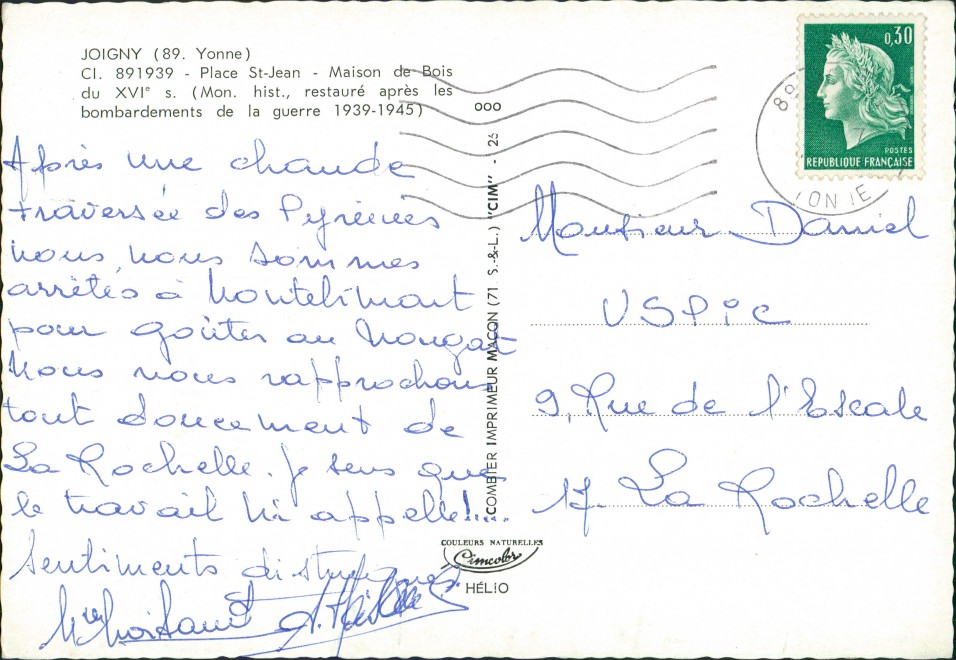 JOIGNY (89. Yonne)
CI. 891939 - Place St-Jean - Maison de Bois
du XVIᵉ s. (Mon. hist., restauré après les
bombardements de la guerre 1939-1945)
ooo
Après une chaude
traversée des Pyrénées
nous nous sommes
arrêtés à Montelimart
pour goûter au Nougat
Nous nous rapprochons
tout doucement de
La Rochelle. Je sens que
le travail m'appelle!...
Sentiments distingués
COMBIER IMPRIMEUR MACON (71. S.-&-L.) "CIM" - 26
COULEURS NATURELLES
Cimcolor
HÉLIO
0,30
POSTES
REPUBLIQUE FRANÇAISE
89
Monsieur Daniel
USPIC
9, Rue de l'Escale
17 La Rochelle